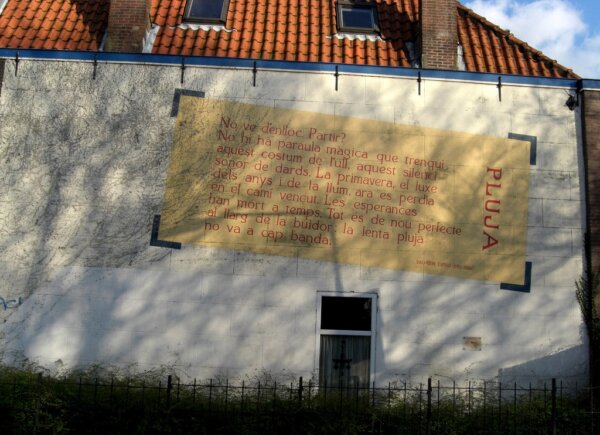 No ve d'enlloc. Partir?
No hi ha paraula màgica que trenqui
aquest costum de l'ull, aquest silenci
sonor de dards. La primavera, el luxe
dels anys i de la llum, ara es perdia
en el camí vençut. Les esperances
han mort a temps. Tot és de nou perfecte
al llarg de la buidor: la lenta pluja
no va a cap banda.
PLUJA